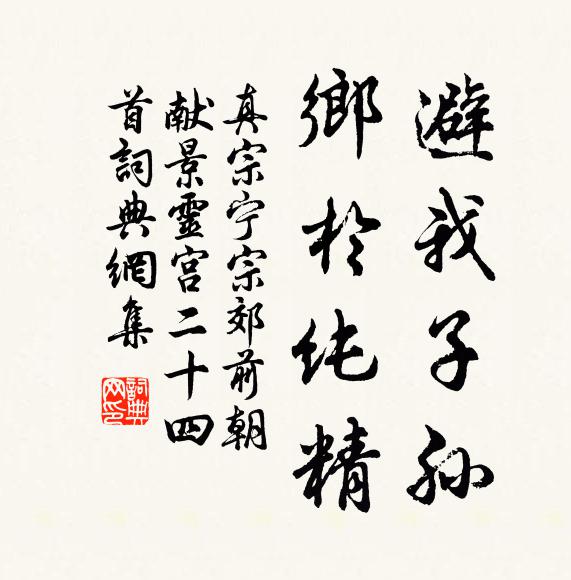 避我子孙
鄉於纯精
真宗宁宗郊前朝
献景靈宫二十四
首詞典網集
詞典网印